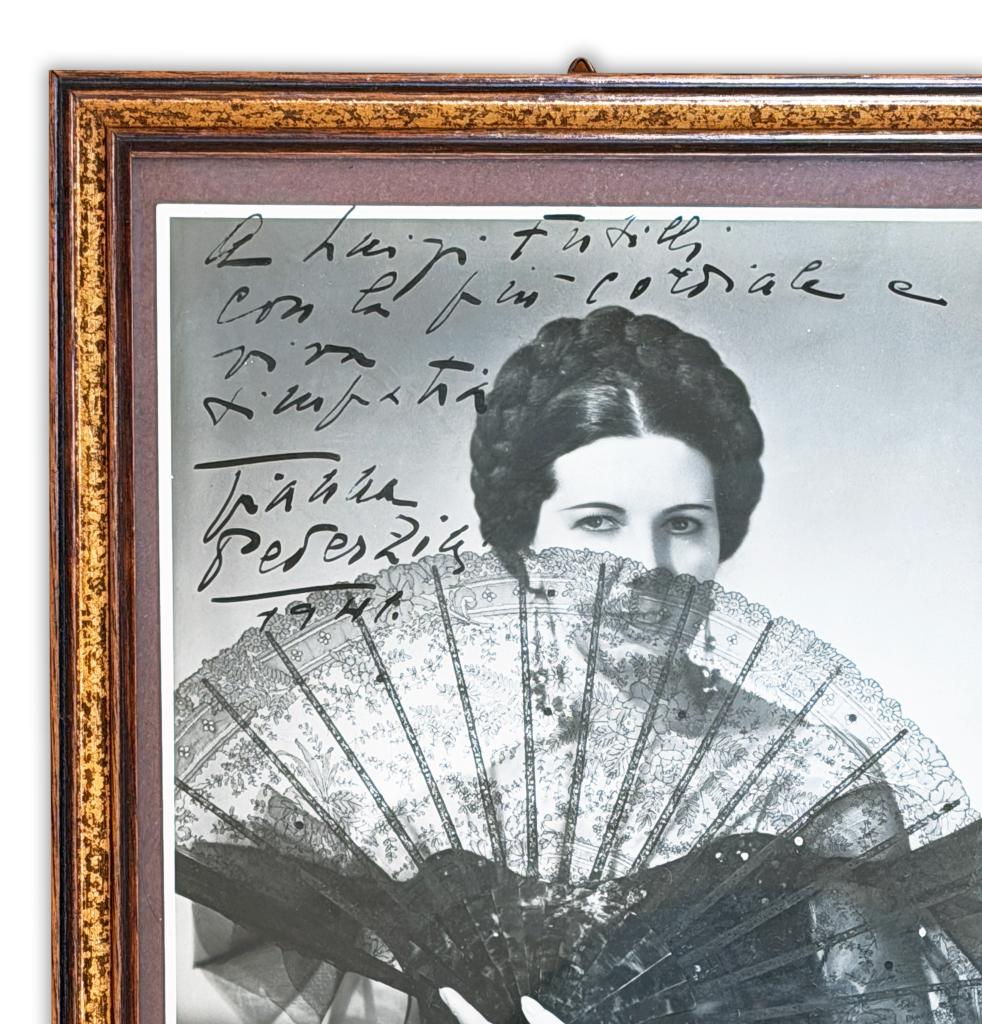 A Luigi Fusilli
con la più cordiale e
viva
simpatia
Gianna
Pederzini
1941.